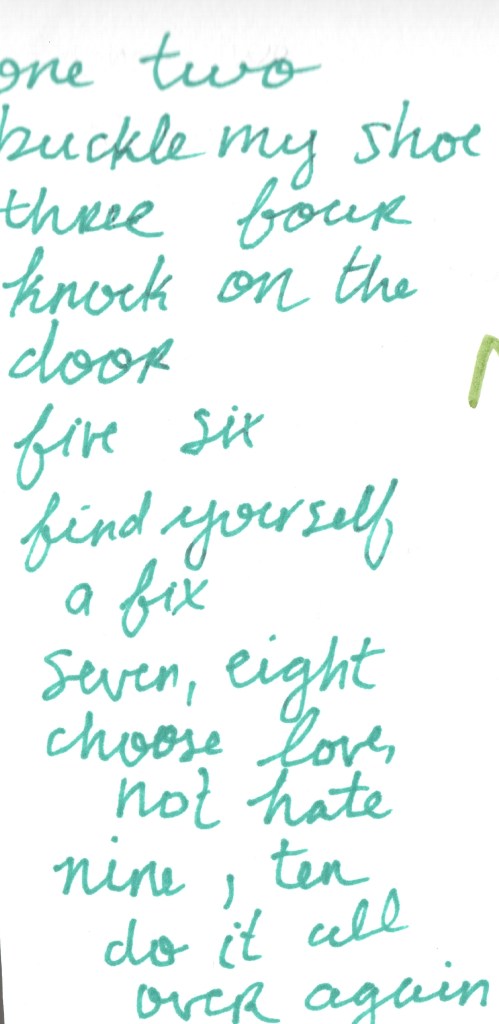 one two
buckle my shoe
three four
knock on the
door
five six
find yourself
a fix
seven, eight
choose love,
not hate
nine, ten
do it all
over again